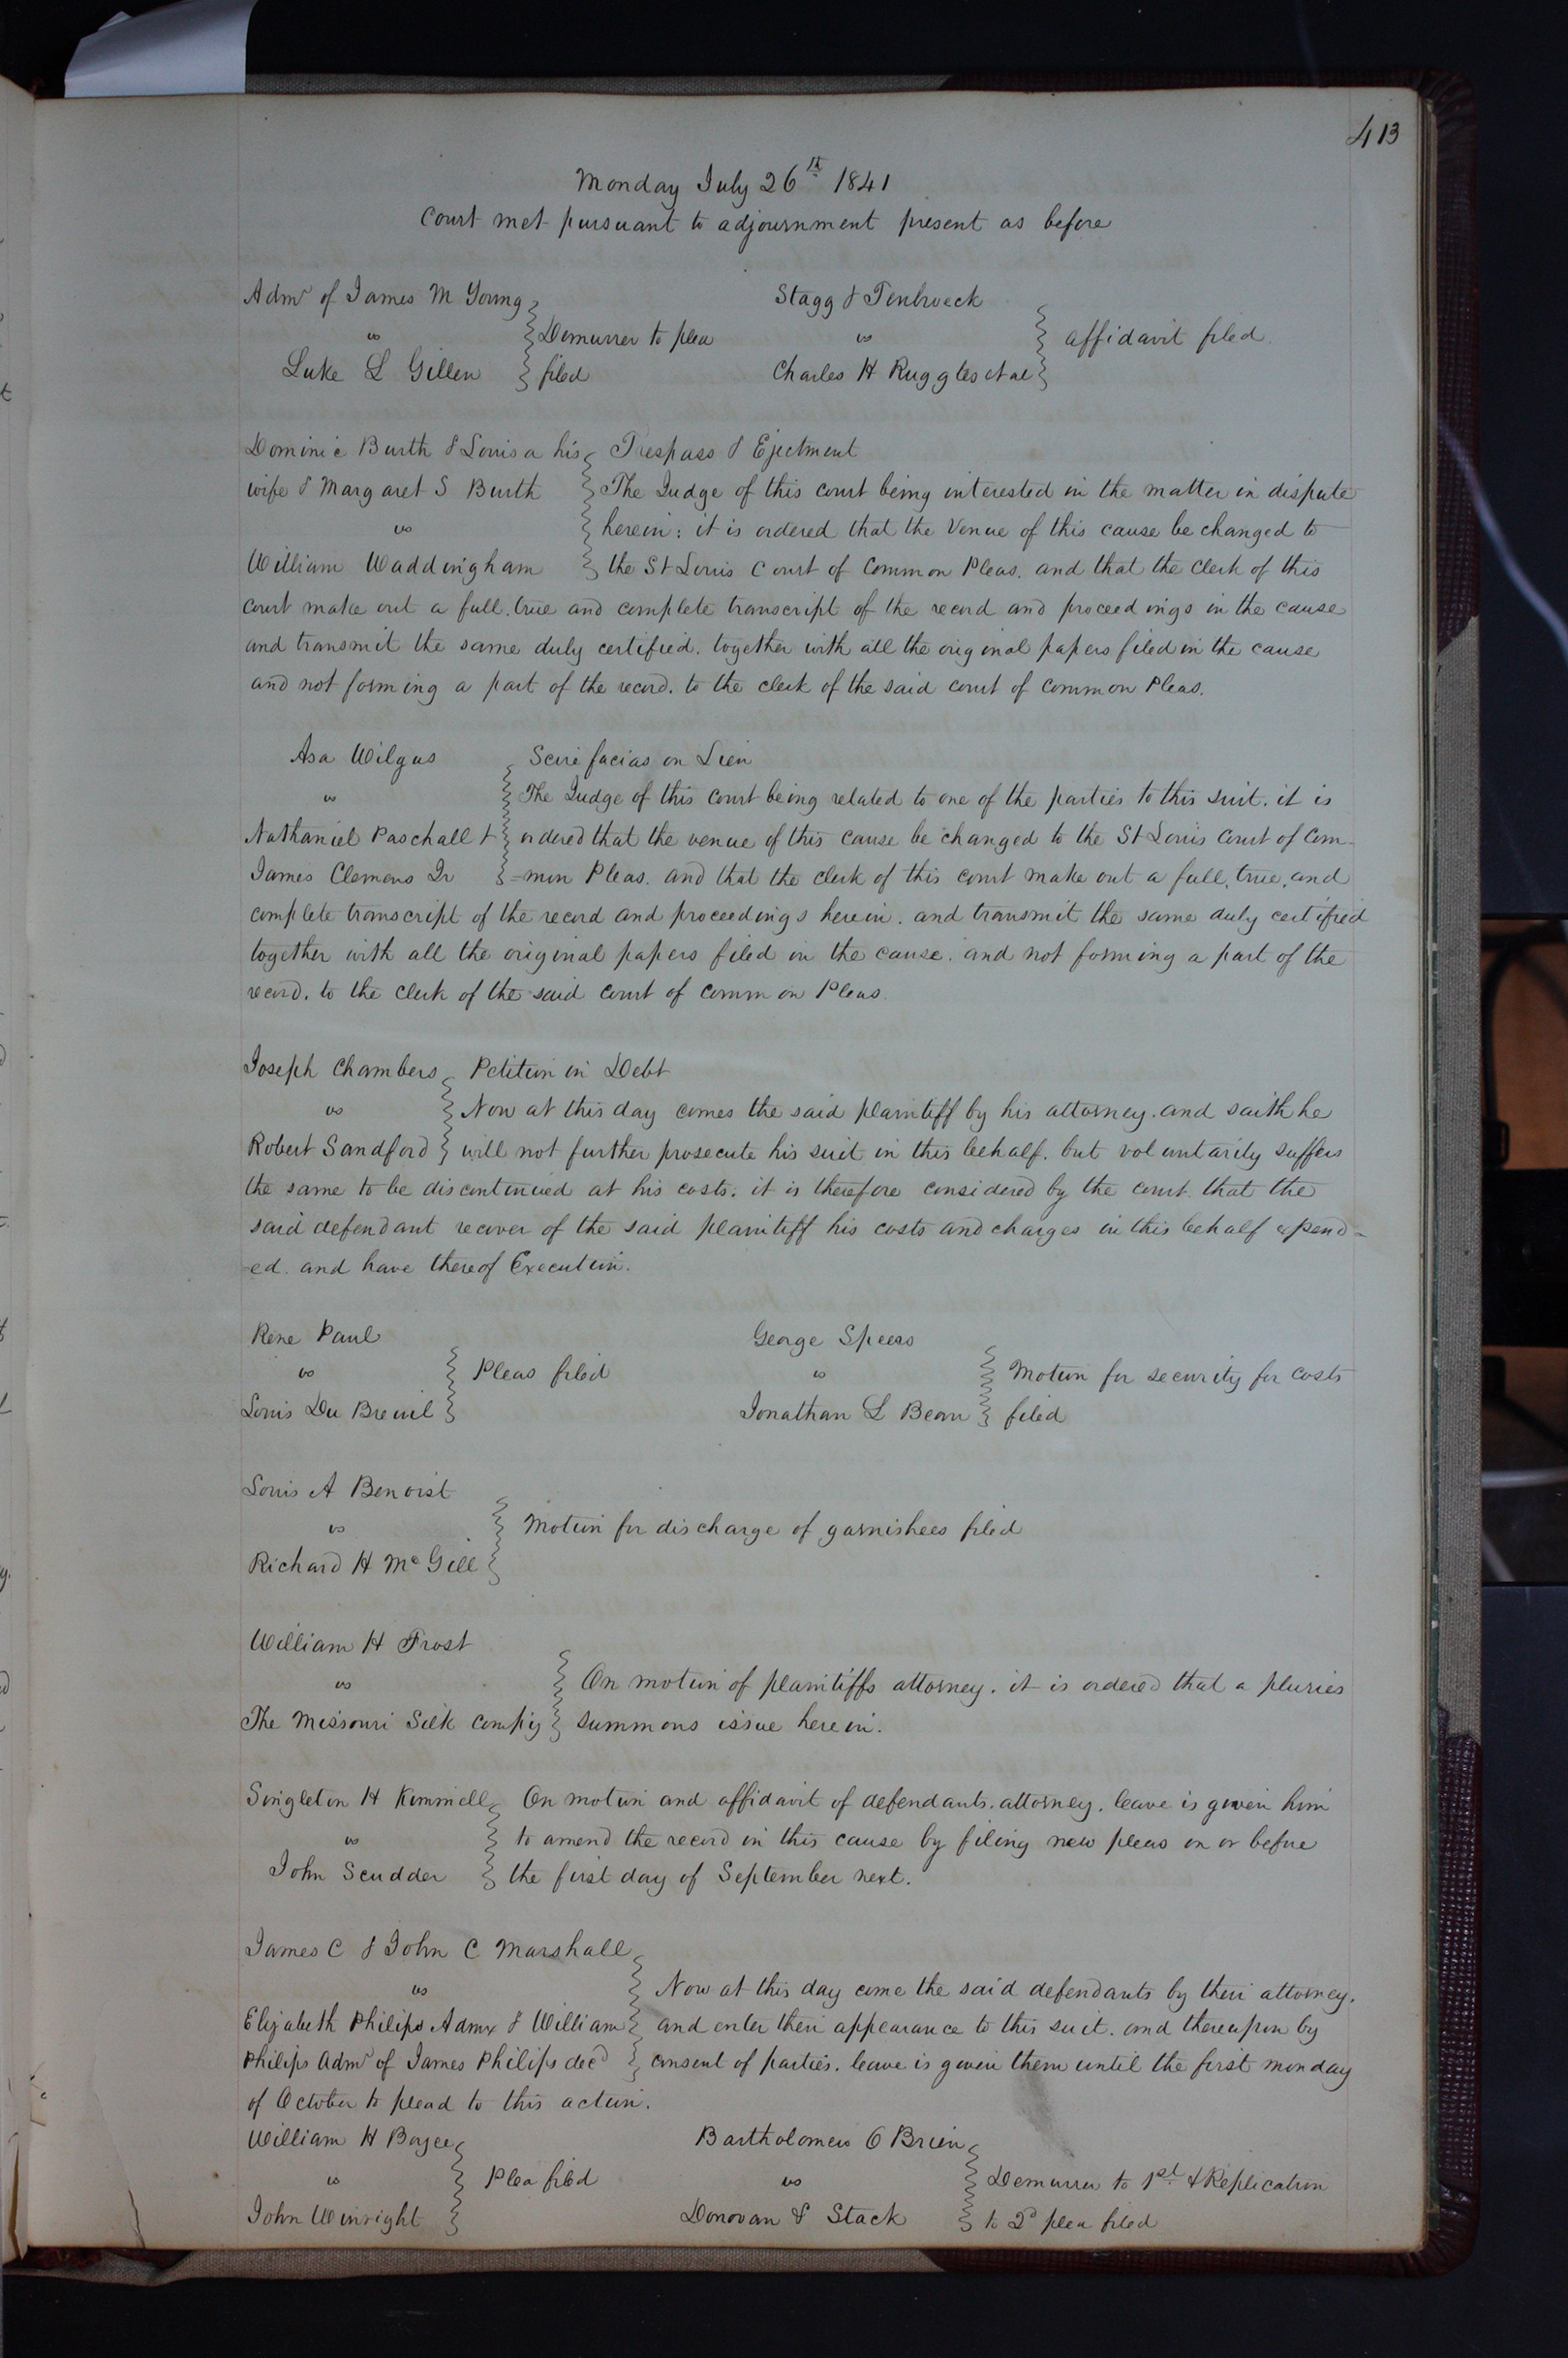 413
Monday July 26th 1841
Court met pursuant to adjournment present as before
Admr of James M Young
vs
Luke L Gillen
Demurrer to plea
filed
Stagg & Tenbroeck
vs
Charles H Ruggles et al
affidavit filed
Dominic Burth & Louisa his
wife & Margaret S Burth
vs
William Waddingham
Trespass & Ejectment
The Judge of this court being interested in the matter in dispute
herein: it is ordered that the Venue of this cause be changed to
the St Louis Court of Common Pleas. and that the clerk of this
court make out a full. true and complete transcript of the record and proceedings in the cause
and transmit the same duly certified. together with all the original papers filed in the cause
and not forming a part of the record. to the clerk of the said court of Common Pleas.
Asa Wilgus
vs
Nathaniel Paschall &
James Clemens Jr
Scire facias on Lien
The Judge of this Court being related to one of the parties to this suit. it is
ordered that the venue of this cause be changed to the St Louis Court of Com-
=mon Pleas. and that the clerk of this court make out a full, true, and
complete transcript of the record and proceedings herein. and transmit the same duly certified
together with all the original papers filed in the cause. and not forming a part of the
record. to the clerk of the said court of Common Pleas.
Joseph Chambers
vs
Robert Sandford
Petition in Debt
Now at this day comes the said plaintiff by his attorney. and saith he
will not further prosecute his suit in this behalf. but voluntarily suffers
the same to be discontinued at his costs. it is therefore considered by the court. that the
said defendant recover of the said plaintiff his costs and charges in this behalf expend=
=ed. and have thereof Execution.
Rene Paul
vs
Louis Du Breuil
Pleas filed
George Speers
vs
Jonathan L Bean
Motion for security for costs
filed
Louis A Benoist
vs
Richard H McGill
Motion for discharge of garnishees filed
William H Frost
vs
The Missouri Silk Compy
On motion of plaintiffs attorney. it is ordered that a pluries
summons issue herein.
Singleton H Kimmell
vs
John Scudder
On motion and affidavit of defendants. attorney. leave is given him
to amend the record in this cause by filing new pleas on or before
the first day of September next.
James C & John C Marshall
vs
Elizabeth Philips Admx & William
Philips Admr of James Philips decd
Now at this day come the said defendants by their attorney.
and enter their appearance to this suit. and thereupon by
consent of parties. leave is given them until the first monday
of October to plead to this action.
William H Boyce
vs
John Winright
Plea filed
Bartholomew O Brien
vs
Donovan & Stack
Demurrer to 1st & Replication
to 2d plea filed